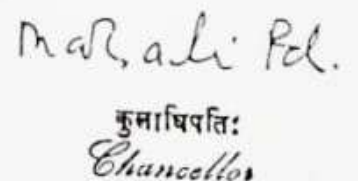 Pd.
कुलाधिपतिः
Chancellor